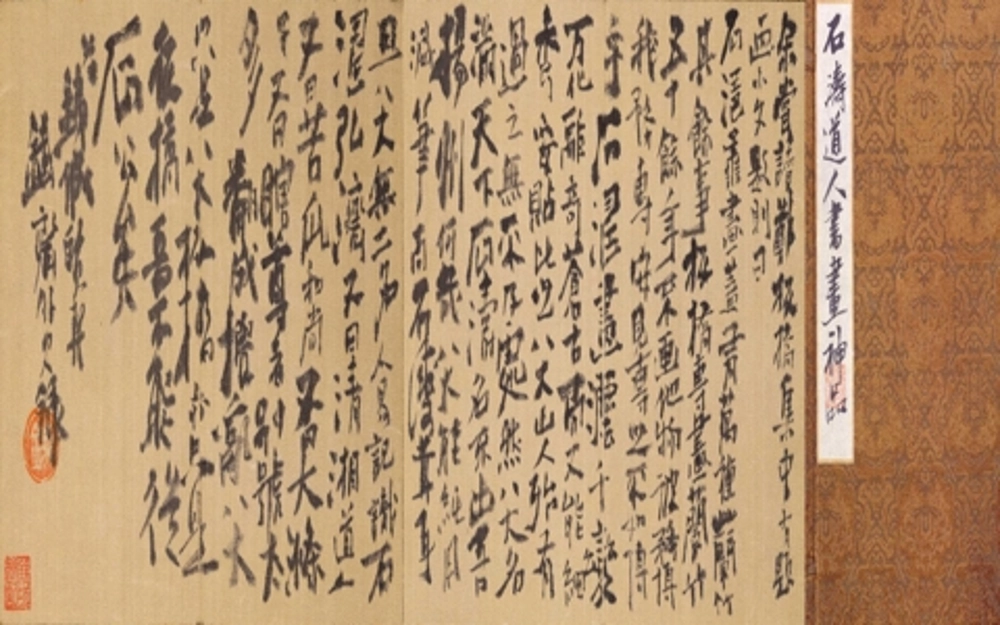 石濤道人書畫神品
余嘗讀鄭板橋集中有題
畫小文 則曰
石濤善畫蓋有萬種蘭竹
其餘事板橋專畫蘭竹
五十餘年不畫他物彼務博
我務專安見專之不如博
乎石濤畫法千變
萬化離奇蒼古而又能細
秀妥貼比之八大山人殆有
過之無不及處然八大名
滿天下石濤名不出吾
揚州何哉八大純用
減筆而石濤茸耳
且八大無二名人易記識石
濤弘濟又曰清湘道人
又曰苦瓜和尚又曰大滌
子又曰瞎尊者別號太
多翻成攪亂八大
只是八大板橋亦只是
板橋吾不能從
石公矣